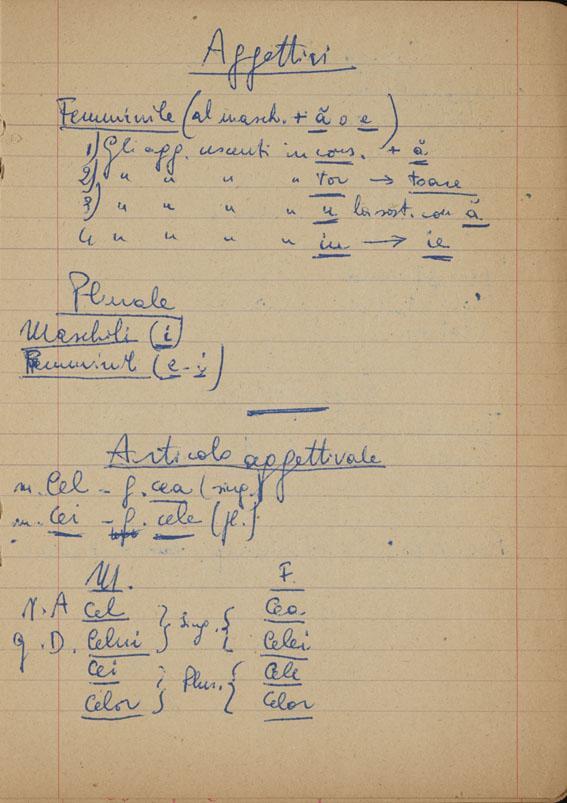 Aggettivi
Femminile (al masch. + ă o e)
1) Gli agg. uscenti in cons. + ă
2) " " " " tor → toare
3) " " " " u lo sost. con ă
4 " " " " iu → ie
Plurale
Maschili (i)
Femminili (e - i)
Articolo aggettivale
m. Cel - f. cea (sing.)
m. Cei - f. cele (pl.)
M. F.
N. A Cel } Sing. { Cea
G. D. Celui } { Celei
Cei } Plur. { Cele
Celor } { Celor